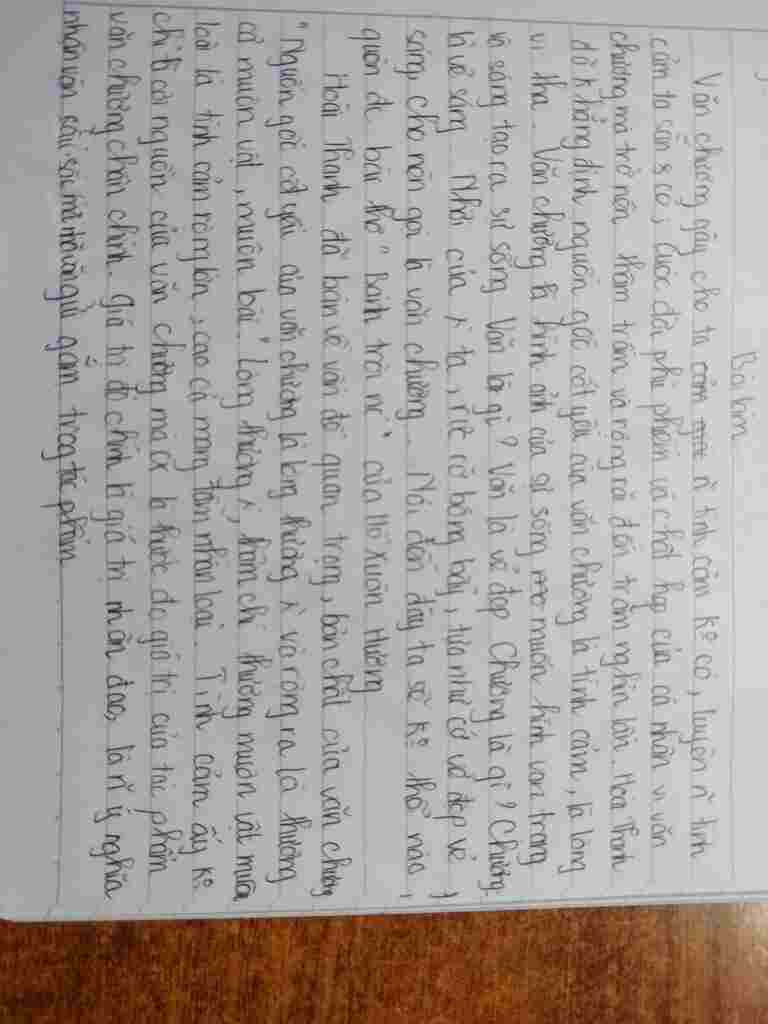 Bài làm
Văn chương gây cho ta n~ tình cảm ko có, luyện n~ tình
cảm ta sẵn s có; cuộc đời phù phiếm và chật hẹp của cá nhân vì văn
chương mà trở nên thâm trầm và rộng rãi đến trăm nghìn lần. Hoài Thanh
đã khẳng định nguồn gốc cốt yếu của văn chương là tình cảm, là lòng
vị tha. Văn chương là hình ảnh của sự sống muôn hình vạn trạng
và sáng tạo ra sự sống Văn là gì? Văn là vẻ đẹp Chương là gì? Chương
là vẻ sáng Nhời của ta, rực rỡ bóng bẩy, tựa như có vẻ đẹp vẻ
sáng, cho nên gọi là văn chương. Nói đến đây ta sẽ ko thể nào
quên đc bài thơ "Bánh trôi nc" của Hồ Xuân Hương
Hoài Thanh đã bàn về vấn đề quan trọng, bản chất của văn chương
"Nguồn gốc cốt yếu của văn chương là lòng thương và rộng ra là thương
cả muôn vật, muôn loài" Lòng thương thậm chí thương muôn vật muôn
loài là tình cảm rộng lớn, cao cả mang tầm nhân loại. Tình cảm ấy ko
chỉ là cội nguồn của văn chương mà là thước đo giá trị của tác phẩm
văn chương chân chính. giá trị đó chính là giá trị nhân đạo, là n~ ý nghĩa
nhân văn sâu sắc mà gửi gắm trong tác phẩm